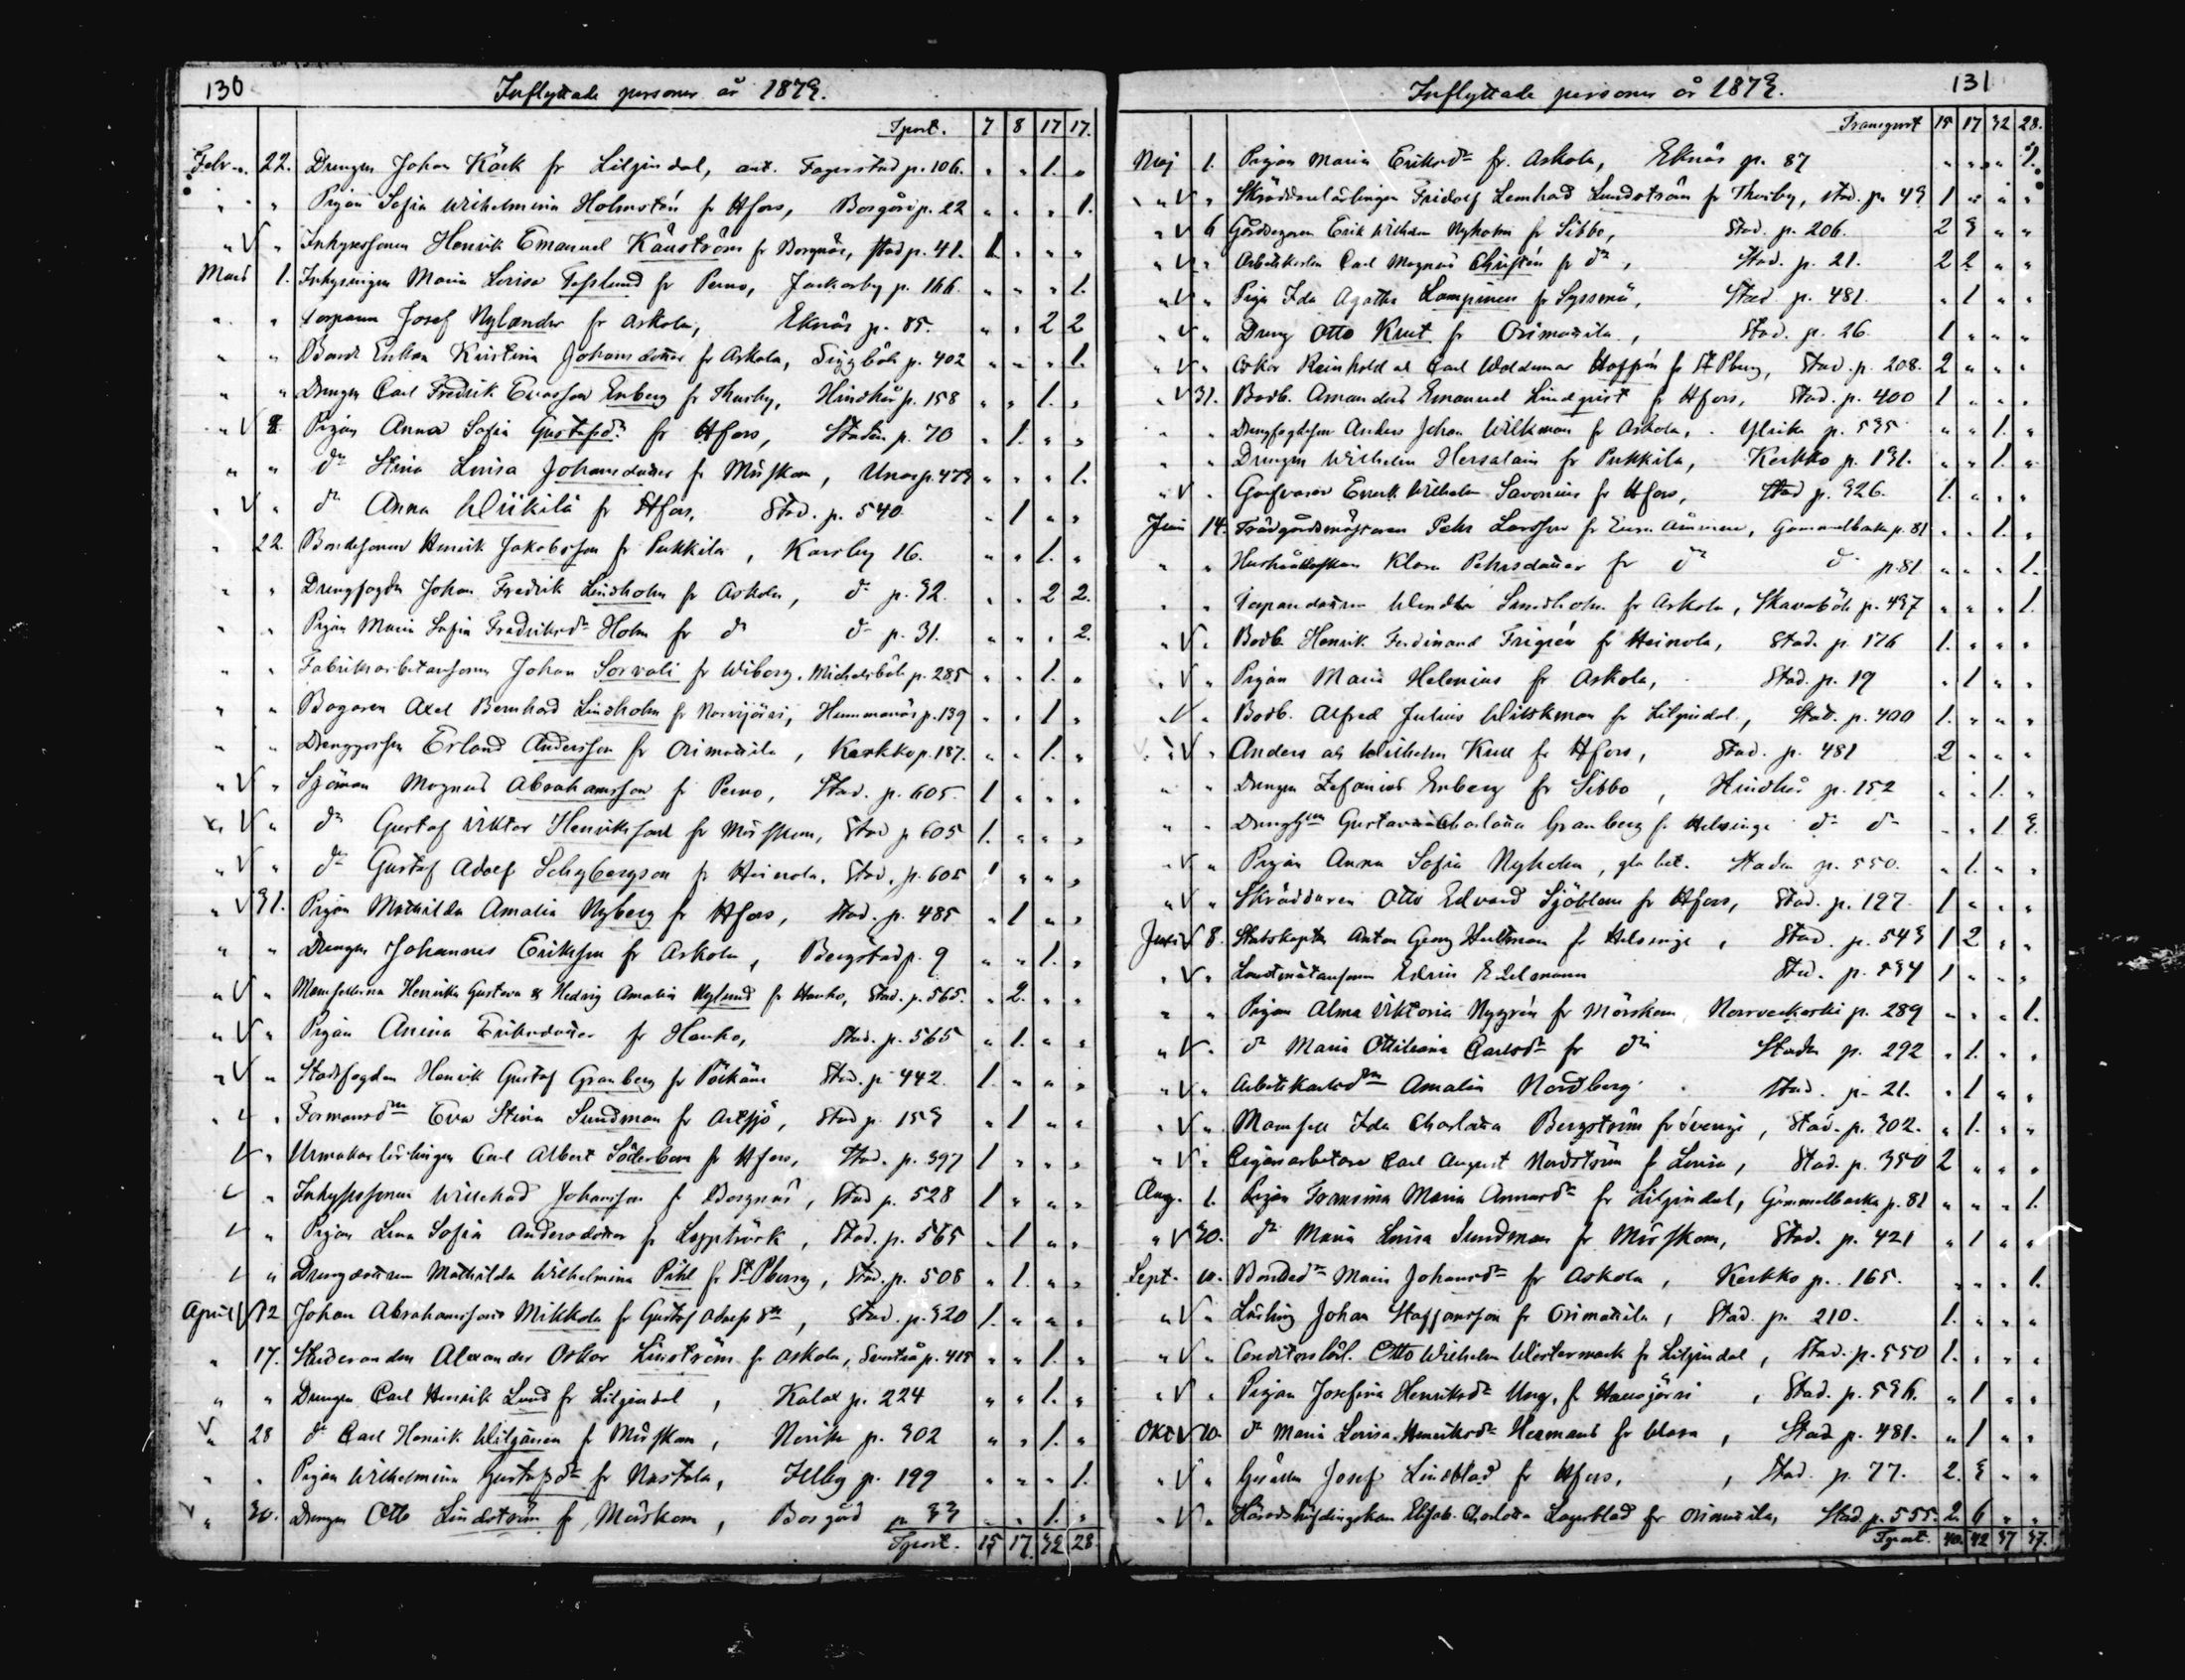 130 Inflyttade personer år 1879.
Tport. 7 8 17 17.
Febr. 22. Drengen Johan Käck fr Liljendal, ant. Fagerstad p. 106. " " 1. "
" " Pigan Sofia Wilhelmina Holmstén fr Hfors, Borgård p. 22 " " " 1.
" V " Inhysessonen Henrik Emanuel Kånström fr Borgnäs, Stad p. 41. 1. " " "
Mars 1. Inhysingen Maria Lovisa Forslund fr Perno, Jackarby p. 166. " " " 1.
" " Torparen Josef Nylander fr Askola, Eknäs p. 85. " " 2 2
" " Bonde Enkan Kristina Johansdotter fr Askola, Siggböle p. 402 " " " 1.
" " Drengen Carl Fredrik Evasson Enberg fr Thusby, Hindhår p. 158 " " 1. "
" V 8 Pigan Anna Sofia Gustafsdr fr Hfors, Staden p. 70 " 1. " "
" " dn Stina Lovisa Johansdotter fr Mörskom, p. 479 " " " 1.
" V " dn Anna Wiikilä fr Hfors, Stad. p. 540 " 1 " "
" 22. Bondesonen Henrik Jakobsson fr Pukkila, Karsby 16. " " 1. "
" " Drengfogden Johan Fredrik Lindholm fr Askola, dn p. 32. " " 2 2.
" " Pigan Maria Sofia Fredriksdr Holm fr dn dn p. 31. " " " 2.
" " Fabriksarbetaresonen Johan Sorvali fr Wiborg, Mickelsböle p. 285 " " 1. "
" " Bagaren Axel Bernhard Lindholm fr Norrijärvi, Hummanäs p. 139 " " 1 "
" " Drenggossen Erland Andersson fr Orimattila, Kerkko p. 187. " " 1. "
" V " Sjöman Magnus Abrahamsson fr Perno, Stad. p. 605. 1 " " "
" V " dn Gustaf Viktor Henriksson fr Mörskom, Stad p 605 1. " " "
" V " dn Gustaf Adolf Schybergson fr Heinola, Stad. p. 605 1 " " "
" V 31. Pigan Mathilda Amalia Nyberg fr Hfors, Stad. p. 485 " 1 " "
" " Drengen Johannes Eriksson fr Askola, Bergstad p. 9 " " 1. "
" V " Mamsellerna Henrika Gustava & Hedvig Amalia Nylund fr Hanko, Stad. p. 565. " 2. " "
" V " Pigan Anina Eriksdotter fr Hanko, Stad. p. 565 " 1. " "
" V " Stadsfogden Henrik Gustaf Granberg fr Stad. p. 442. 1. " " "
" V " Formansdn Eva Stina Sundman fr Artsjö, Stad p. 153 " 1 " "
V " Urmakarlärlingen Carl Albert Söderbom fr Hfors, Stad. p. 397 1 " " "
V " Inhysessonen Willehad Johansson fr Borgnäs, Stad p. 528 1 " " "
V " Pigan Lena Sofia Andersdotter fr Lappträsk, Stad. p. 565 " 1 " "
V " Drengdottren Mathilda Wilhelmina Pihl fr St Pburg, Stad. p. 508 " 1. " "
April V 12 Johan Abrahamsson Mikkola fr Gustaf Adolfs , Stad. p. 320 1. " " "
" 17. Studeranden Alexander Oskar Linström fr Askola, p. 415 " " 1. "
" " Drengen Carl Henrik Lund fr Liljendal, Kalax p. 224 " " 1. "
V " 28 dn Carl Henrik Wilgånen fr Mörskom, Norike p. 302 " " 1. "
" " Pigan Wilhelmina Gustafsdr fr Nastola, Illby p. 199 " " " 1.
V " 30. Drengen Otto Lindström fr Mörskom, Borgård p 33 " " 1. "
Tport. 15 17. 32 28

Inflyttade personer år 1879. 131
Transport 15 17 32 28.
Maj 1. Pigan Maria Eriksdr fr. Askola, Eknäs p. 87 " " " 1.
" V " Skräddarelärlingen Fridolf Leonhard Lundström fr Thusby, stad. p. 49 1 " " "
" V 6 Gårdsegaren Erik Wilhelm Nyholm fr Sibbo, Stad. p. 206. 2 3 " "
" V " Arbetskarlen Carl Magnus Christén fr dn, Stad. p. 21. 2 2 " "
" V " Piga Ida Agatha Lampinen fr Sysmä, Stad. p. 481. " 1 " "
" V " Dreng Otto Knut fr Orimattila, Stad. p. 26. 1 " " "
" V " Oskar Reinhold och Carl Waldemar Hoffrén fr St Pburg, Stad. p. 208. 2 " " "
" V 31. Bodb. Amandus Emanuel Lindqvist fr Hfors, Stad. p. 400 1 " " "
" " Drengfogdesn Anders Johan Wilkman fr Askola, Ylike p. 535 " " 1. "
" " Drengen Wilhelm Hersalain fr Pukkila, Kerkko p. 191. " " 1. "
" V " Garfvaren Wilhelm Savonius fr Hfors, Stad p. 326. 1. " " "
Juni 14. Trädgårdsmästaren Pehr Larsson fr , Gammelbacka p. 81 " " 1. "
" " Hushållerskan Klara Pehrsdotter fr dn dn p. 81 " " " 1.
" " Torparedottren Wendla Sandholm fr Askola, Skavaböle p. 437 " " " 1.
" V " Bodb. Henrik Ferdinand Frigrén fr Heinola, Stad. p. 176 1. " " "
" V " Pigan Maria Helenius fr Askola, Stad. p. 19 " 1 " "
" V " Bodb. Alfred Julius Widskman fr Liljendal, Stad. p. 400 1. " " "
" V " Anders och Wilhelm Kull fr Hfors, Stad. p. 481 2 " " "
" " Drengen Zefanias Enberg fr Sibbo, Hindhår p. 152 " " 1. "
" " Gustava Charlotta Granberg fr Helsinge dn dn " " 1 3.
" V " Pigan Anna Sofia Nyholm, Staden p. 550. " 1. " "
" V " Skräddaren Otto Edvard Sjöblom fr Hfors, Stad. p. 197. 1 " " "
Juli V 8. Statskapten Anton Georg Hultman fr Helsinge, Stad. p. 543 1 2 " "
" V " Landtmätaresonen Edvin Edelmann Stad. p. 534 1 " " "
" " Pigan Alma Viktoria Nygrén fr Mörskom, Norrveckoski p. 289 " " " 1.
" V " dn Maria Ottiliana Carlsdr fr dn Staden p. 292 " 1. " "
" V " Arbetskarlsdn Amalia Nordberg Stad. p. 21. " 1 " "
" V " Mamsell Ida Charlotta Bergström fr Sverige, Stad. p. 302. " 1. " "
" V " Cigarrarbetare Carl August Nordström fr Lovisa, Stad. p. 350 2 " " "
Aug. 1. Pigan Fransina Maria Annasdr fr Liljendal, Gammelbacka p. 81 " " " 1.
" V 30. dn Maria Lovisa Sundman fr Mörskom, Stad. p. 421 " 1 " "
Sept. 10. Bondedn Maria Johansdr fr Askola, Kerkko p. 165. " " " 1.
" V " Lärling Johan Staffansson fr Orimattila, Stad. p. 210. 1. " " "
" V " Conditorslärl. Otto Wilhelm Westermark fr Liljendal, Stad. p. 550 1. " " "
" V " Pigan Josefina Henriksdr Ung, fr Hausjärvi, Stad. p. 536. " 1 " "
Okt V 10. dn Maria Lovisa Henriksdr Hermans fr Wasa, Stad p. 481. " 1 " "
" V " Gesällen Josef Lindblad fr Hfors, Stad. p. 77. 2. 3 " "
" V " Häradshöfdingskan Elisab. Charlotta Lagerblad fr Orimattila, Stad. p. 555. 2. 6 " "
Tport. 40. 42 37 37.